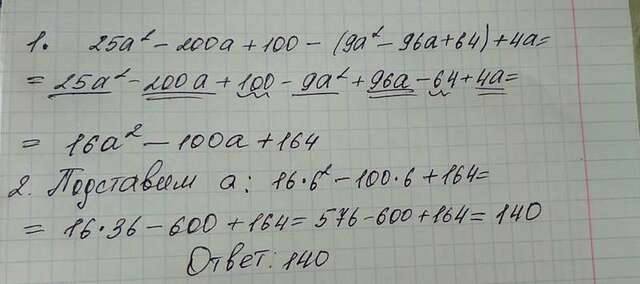 1. 25a² - 200a + 100 - (9a² - 96a + 64) + 4a =
= 25a² - 200a + 100 - 9a² + 96a - 64 + 4a =
= 16a² - 100a + 164
2. Подставим a: 16·6² - 100·6 + 164 =
= 16·36 - 600 + 164 = 576 - 600 + 164 = 140
Ответ: 140